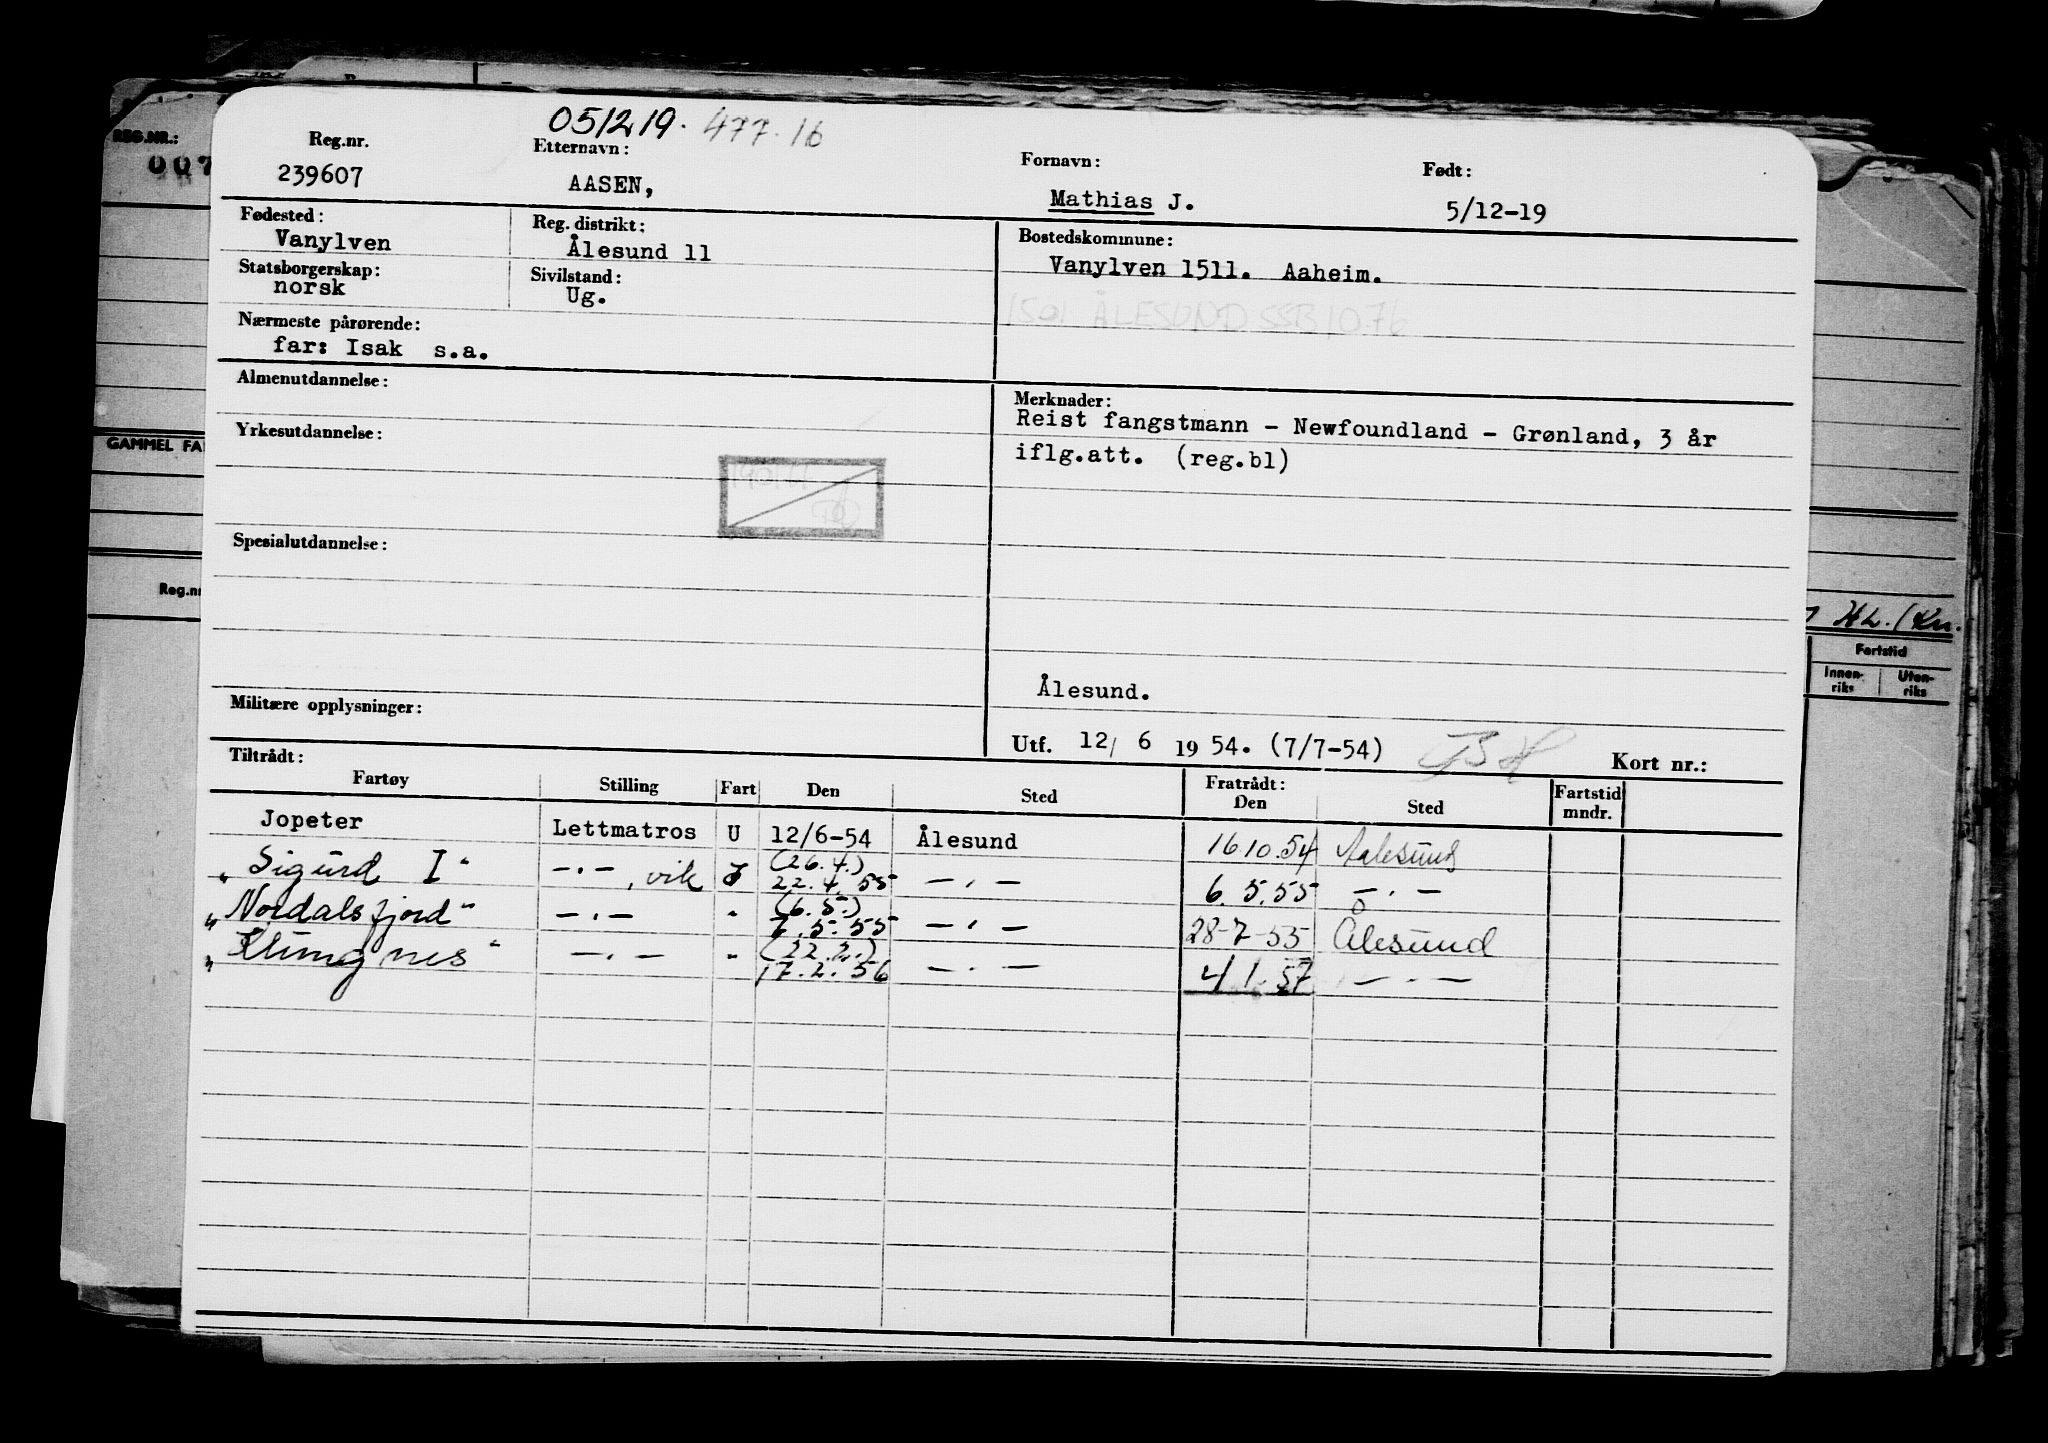 051219. 477.16
Reg.nr. Etternavn: Fornavn: Født:
239607 AASEN, Mathias J. 5/12-19
Fødested: Reg. distrikt: Bostedskommune:
Vanylven Ålesund 11 Vanylven 1511. Aaheim.
Statsborgerskap: Sivilstand:
norsk Ug.
1501 ÅLESUND SSB 1076
Nærmeste pårørende:
far: Isak s.a.
Almenutdannelse: Merknader:
Reist fangstmann - Newfoundland - Grønland, 3 år
Yrkesutdannelse: iflg.att. (reg.bl)
Spesialutdannelse:
Ålesund.
Militære opplysninger:
Utf. 12/ 6 19 54. (7/7-54) Kort nr.:
Tiltrådt: Fratrådt:
Fartøy Stilling Fart Den Sted Den Sted Fartstid mndr.
Jopeter Lettmatros U 12/6-54 Ålesund 16.10.54 Aalesund
"Sigurd I" -.-, vik (26.4.) 22.4.55 -.- 6.5.55 -.-
"Nordalsfjord" -.- " (6.5.) 7.5.55 -.- 28-7-55 Ålesund
"Klungnes" -.- " (22.2.) 17.2.56 -.- 4/1.57 -.-
REG.NR.:
007
GAMMEL FA
Reg.nr
Fartstid
Innen-riks Uten-riks